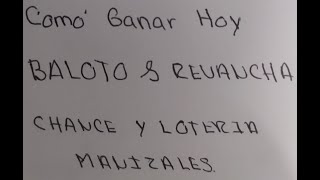 Comó Ganar Hoy
BALOTO & REVANCHA
CHANCE Y LOTERIA
MANIZALES.